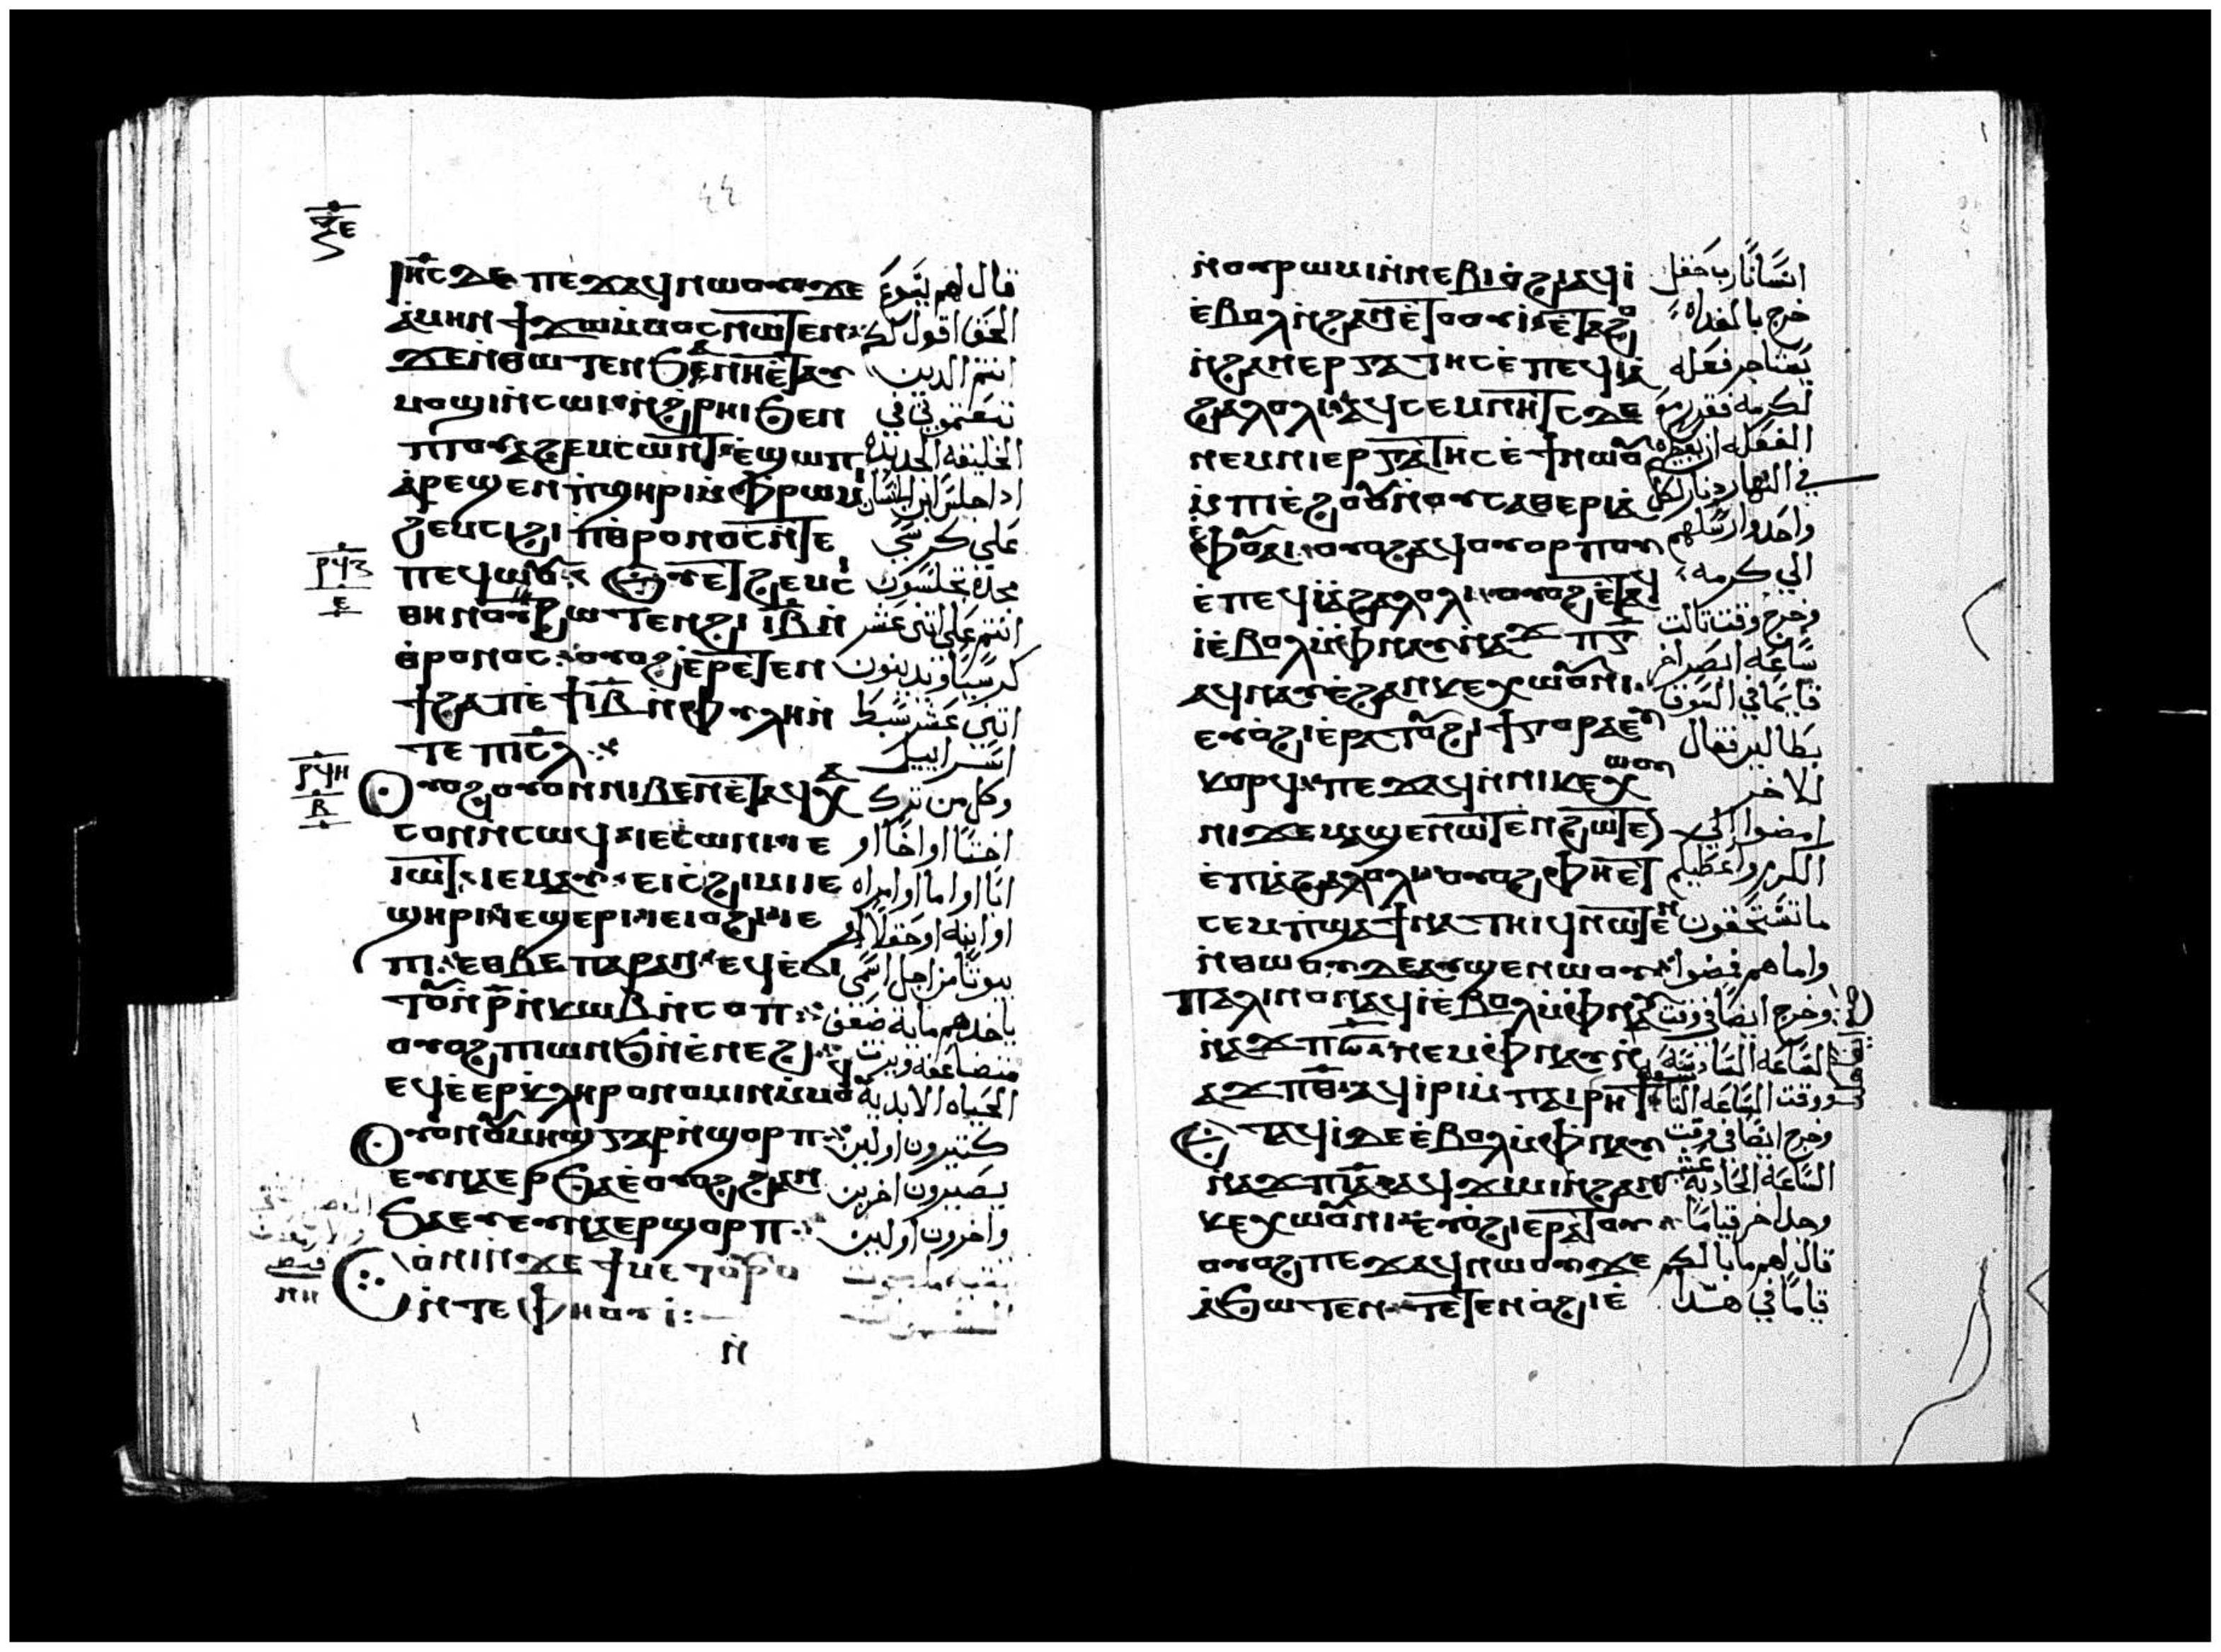 ⲓⲏ̅ⲥ ⲇⲉ ⲡⲉϫⲁϥ ⲛⲱⲟⲩ ϫⲉ قال لهم يسوع
ⲁ̇ⲙⲏⲛ ϯϫⲱ ⲙ̇ⲙⲟⲥ ⲛⲱⲧⲉⲛ الحق اقول لكم
ϫⲉ ⲛ̇ⲑⲱⲧⲉⲛ ϧⲁ ⲛⲏⲉ̇ⲧⲁⲩ انتم الدين
ⲙⲟϣⲓ ⲛ̇ⲥⲱⲓ ⲛ̇ϩⲣⲏⲓ ϧⲉⲛ تبعتموني في
ⲡⲓⲟⲩⲁϩⲉⲙⲥⲱⲛⲧ ⲉ̇ϣⲱⲡ الخليقه الجديده
ⲁ̇ⲣⲉϣⲉⲛ ⲡ̇ϣⲏⲣⲓ ⲙ̇ⲫⲣⲱⲙⲓ ادا جلس ابن الانسان
ϩⲉⲙⲥⲓ ϩⲓ ⲡ̇ⲑⲣⲟⲛⲟⲥ ⲛ̇ⲧⲉ على كرسي
ⲡⲉϥⲱⲟⲩ مجده تجلسون
ⲑⲏⲛⲟⲩ ϩⲱⲧⲉⲛ ϩⲓ ⲓ̅ⲃ̅ ⲛ̇ انتم على اثني عشر
ⲑⲣⲟⲛⲟⲥ ⲟⲩⲟϩ ⲉ̇ⲣⲉⲧⲉⲛ كرسيا وتدينون
ϯϩⲁⲡ ⲉ̇ϯⲓ̅ⲃ̅ ⲙ̇ⲫⲩⲗⲏ ⲛ̇ اثني عشر سبط
ⲧⲉ ⲡⲓⲥ̅ⲗ اسراييل
ⲟⲩⲟϩ ⲟⲩⲟⲛ ⲛⲓⲃⲉⲛ ⲉ̇ⲧⲁϥⲭⲁ وكل من ترك
ⲥⲟⲛ ⲛ̇ⲥⲱϥ ⲓⲉ ⲥⲱⲛⲓ ⲓⲉ اختا او اخا او
ⲓⲱⲧ ⲓⲉ ⲙⲁⲩ ⲉⲓ ⲥ̇ϩⲓⲙⲓ ⲓⲉ ابا او اما او امراه
ϣⲏⲣⲓ ⲓⲉ ϣⲉⲣⲓ ⲓⲉ ⲓⲟϩⲓ ⲓⲉ او ابنه او حقلا او
ⲏⲓ ⲉⲑⲃⲉ ⲡⲁⲣⲁⲛ ⲉϥⲉ̇ϭⲓ بيوتا من اجل اسمي
ⲧⲟⲩ ⲛ̇ⲣ̅ ⲛ̇ⲕⲱⲃ ⲛ̇ⲥⲟⲡ ياخدهم مايه ضعف
ⲟⲩⲟϩ ⲡⲓⲱⲛϧ ⲛ̇ⲉⲛⲉϩ ويرت
ⲉϥⲉ̇ⲉⲣⲕⲗⲏⲣⲟⲛⲟⲙⲓⲛ ⲙ̇ⲙⲟϥ الحياه الابديه
ⲟⲩⲟⲛ ⲟⲩⲙⲏϣ ⲅⲁⲣ ⲛ̇ϣⲟⲣⲡ كتيرون اولين
ⲉⲩⲛⲁⲉⲣϧⲁⲉ̇ ⲟⲩⲟϩ ϩⲁⲛ يصيرون اخرين
ϧⲁⲉⲩ ⲉⲩⲛⲁⲉⲣϣⲟⲣⲡ واخرون اولين
ⲥⲟⲛⲓ ⲛ̇ϫⲉ ϯⲙⲉⲧⲟⲩⲣⲟ
ⲛ̇ⲧⲉ ⲛⲓⲫⲏⲟⲩⲓ̇
ⲛ̇
ⲛ̇ⲟⲩⲣⲱⲙⲓ ⲛ̇ⲛⲉⲃⲓⲟ̇ϩⲓ ⲁϥⲓ̇ انسانا رب حقل
ⲉ̇ⲃⲟⲗ ⲛ̇ϩⲁⲛⲉ̇ⲧⲟⲟⲩⲓ̇ ⲉ̇ⲑⲁϩⲟ خرج بالغداه
ⲛ̇ϩⲁⲛⲉⲣⲅⲁⲧⲏⲥ ⲉ̇ⲡⲉϥⲓⲁ يستاجر فعله
ϩⲁⲗⲟⲗⲓ ⲁϥⲥⲉⲙⲛⲏⲧⲥ ⲇⲉ لكرمه فقرر مع
ⲛⲉⲙ ⲛⲓⲉⲣⲅⲁⲧⲏⲥ ⲉ̇ϯ ⲛⲱⲟⲩ الفعله ان يعطيهم
ⲙ̇ⲡⲓⲉ̇ϩⲟⲟⲩ ⲛ̇ⲟⲩⲥⲁⲑⲉⲣⲓ ⲁ̇ في النهار دينار لكل
ⲉ̇ⲫⲟⲩⲁⲓ ⲟⲩⲟϩ ⲁϥⲟⲩⲟⲣⲡⲟⲩ واحد وارسلهم
ⲉ̇ⲡⲉϥⲓⲁϩⲁⲗⲟⲗⲓ ⲟⲩⲟϩ ⲉ̇ⲧⲁϥ الي كرمه
ⲓ̇ ⲉ̇ⲃⲟⲗ ⲙ̇ⲫⲛⲁⲩ ⲛ̇ⲁϫⲡ ⲅ̅ وخرج وقت تالت
ⲁϥⲛⲁⲩ ⲉ̇ϩⲁⲛⲕⲉⲭⲱⲟⲩⲛⲓ ساعه ابصر اخر
ⲉⲩⲟ̇ϩⲓ ⲉ̇ⲣⲁⲧⲟⲩ ϩⲓ ϯⲁⲅⲟⲣⲁ ⲉⲩ قايما في السوق
ⲕⲟⲣϥ ⲡⲉϫⲁϥ ⲛ̇ⲛⲓⲕⲉⲭⲱⲟⲩ بطالين فقال
ⲛⲓ ϫⲉ ⲙⲁϣⲉⲛⲱⲧⲉⲛ ϩⲱⲧⲉⲛ للاخر
ⲉ̇ⲡⲓⲁϩⲁⲗⲟⲗⲓ ⲟⲩⲟϩ ⲫⲏⲉ̇ⲧ امضوا الي
ⲥⲉⲙⲡϣⲁ ϯⲛⲁⲧⲏⲓϥ ⲛⲱⲧⲉⲛ الكرم واعطيكم
ⲛ̇ⲑⲱⲟⲩ ⲇⲉ ⲁⲩϣⲉⲛⲱⲟⲩ ما تستحقون
ⲡⲁⲗⲓⲛ ⲟⲛ ⲁϥⲓ̇ ⲉ̇ⲃⲟⲗ ⲙ̇ⲫⲛⲁⲩ واما هم فمضوا
ⲛ̇ⲁϫⲡ ⲋ̅ ⲛⲉⲙ ⲫⲛⲁⲩ ⲛ̇ وخرج ايضا في وقت
ⲁϫⲡ ⲑ̅ ⲁϥⲓ̇ⲣⲓ ⲙ̇ⲡⲁⲓⲣⲏϯ الساعه السادسه
ⲉ̇ⲧⲁϥⲓ̇ ⲇⲉ ⲉ̇ⲃⲟⲗ ⲙ̇ⲫⲛⲁⲩ وخرج ايضا في وقت
ⲛ̇ⲁϫⲡ ⲓ̅ⲁ̅ ⲁϥϫⲓⲙⲓ ⲛ̇ϩⲁⲛ الساعه الحاديه عشر
ⲕⲉⲭⲱⲟⲩⲛⲓ ⲉⲩⲟ̇ϩⲓ ⲉ̇ⲣⲁⲧⲟⲩ وجد اخر قياما
ⲟⲩⲟϩ ⲡⲉϫⲁϥ ⲛⲱⲟⲩ ϫⲉ قال لهم ما بالكم
ⲁ̇ϧⲱⲧⲉⲛ ⲧⲉⲧⲉⲛⲟ̇ϩⲓ ⲉ̇ قياما في هدا